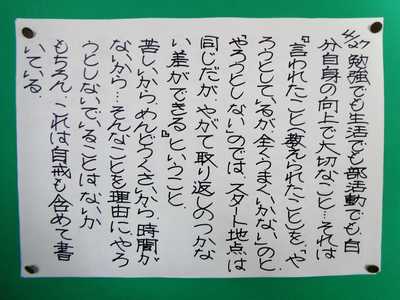 4/27 勉強でも生活でも部活動でも、自
分自身の向上で大切なこと…それは
『言われたこと(教えられたこと)を、「や
ろうとしているが、全くうまくいかない」のと、
「やろうとしない」のでは、スタート地点は
同じだが、やがて取り返しのつかな
い差ができる』ということ。
苦しいから、めんどうくさいから、時間が
ないから…そんなことを理由に、やろ
うとしないでいることはないか
もちろん…これは自戒も含めて書
いている。